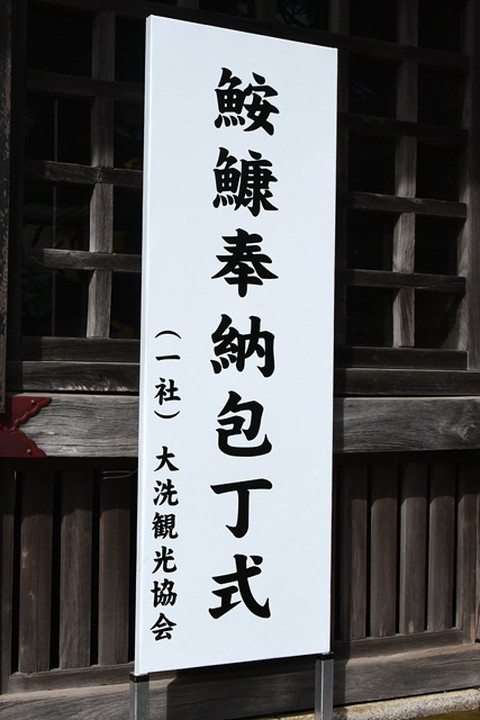 鮟鱇奉納包丁式
（一社）大洗観光協会